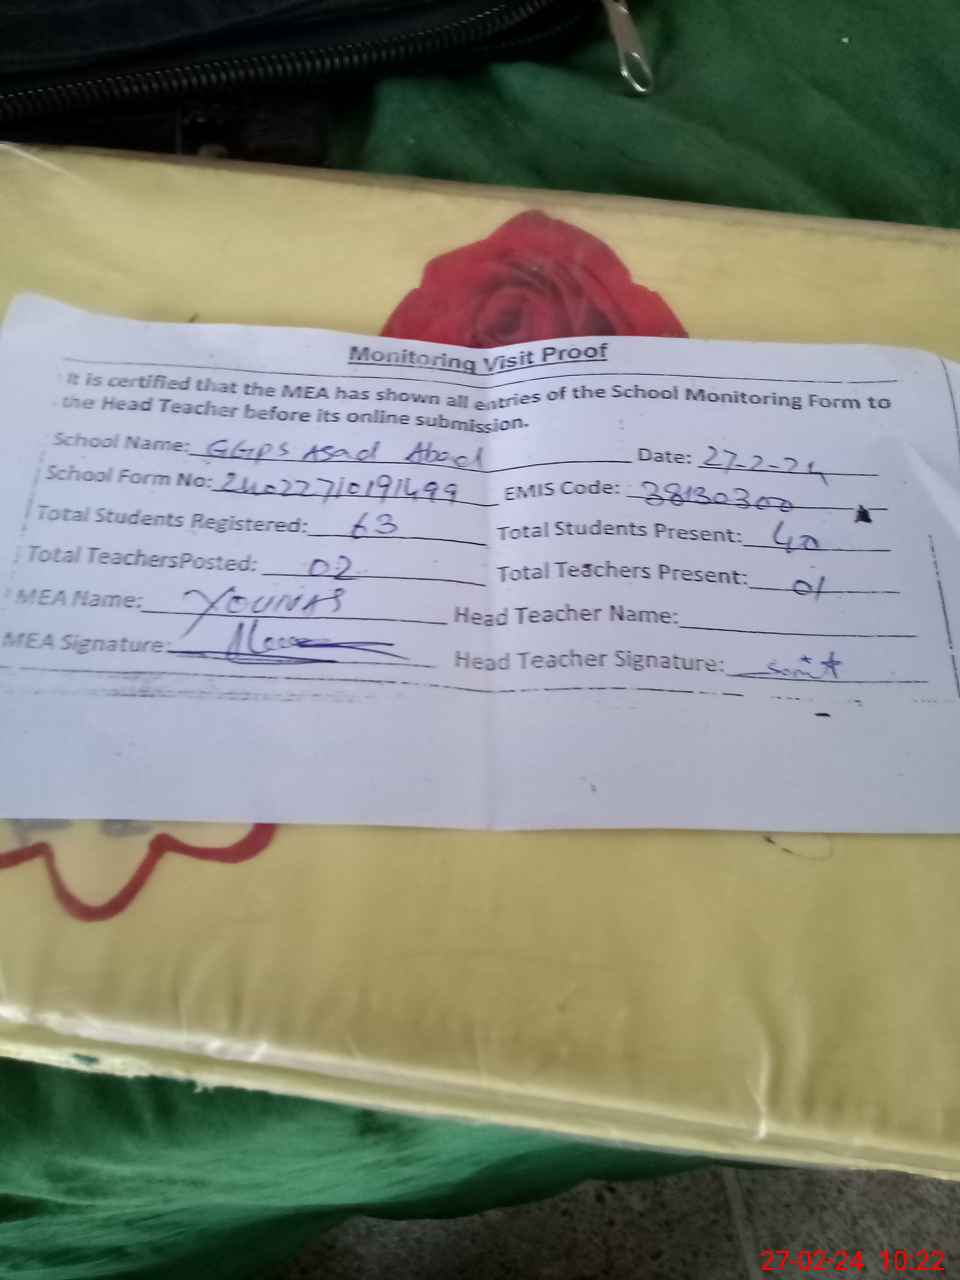 Monitoring Visit Proof
It is certified that the MEA has shown all entries of the School Monitoring Form to
the Head Teacher before its online submission.
School Name: GGPS Asad Abad Date: 27-2-24
School Form No: 240227/0191499 EMIS Code: 38130300
Total Students Registered: 63 Total Students Present: 40
Total TeachersPosted: 02 Total Teachers Present: 01
MEA Name: YOUNAS Head Teacher Name:
MEA Signature: Head Teacher Signature:
27-02-24 10:22